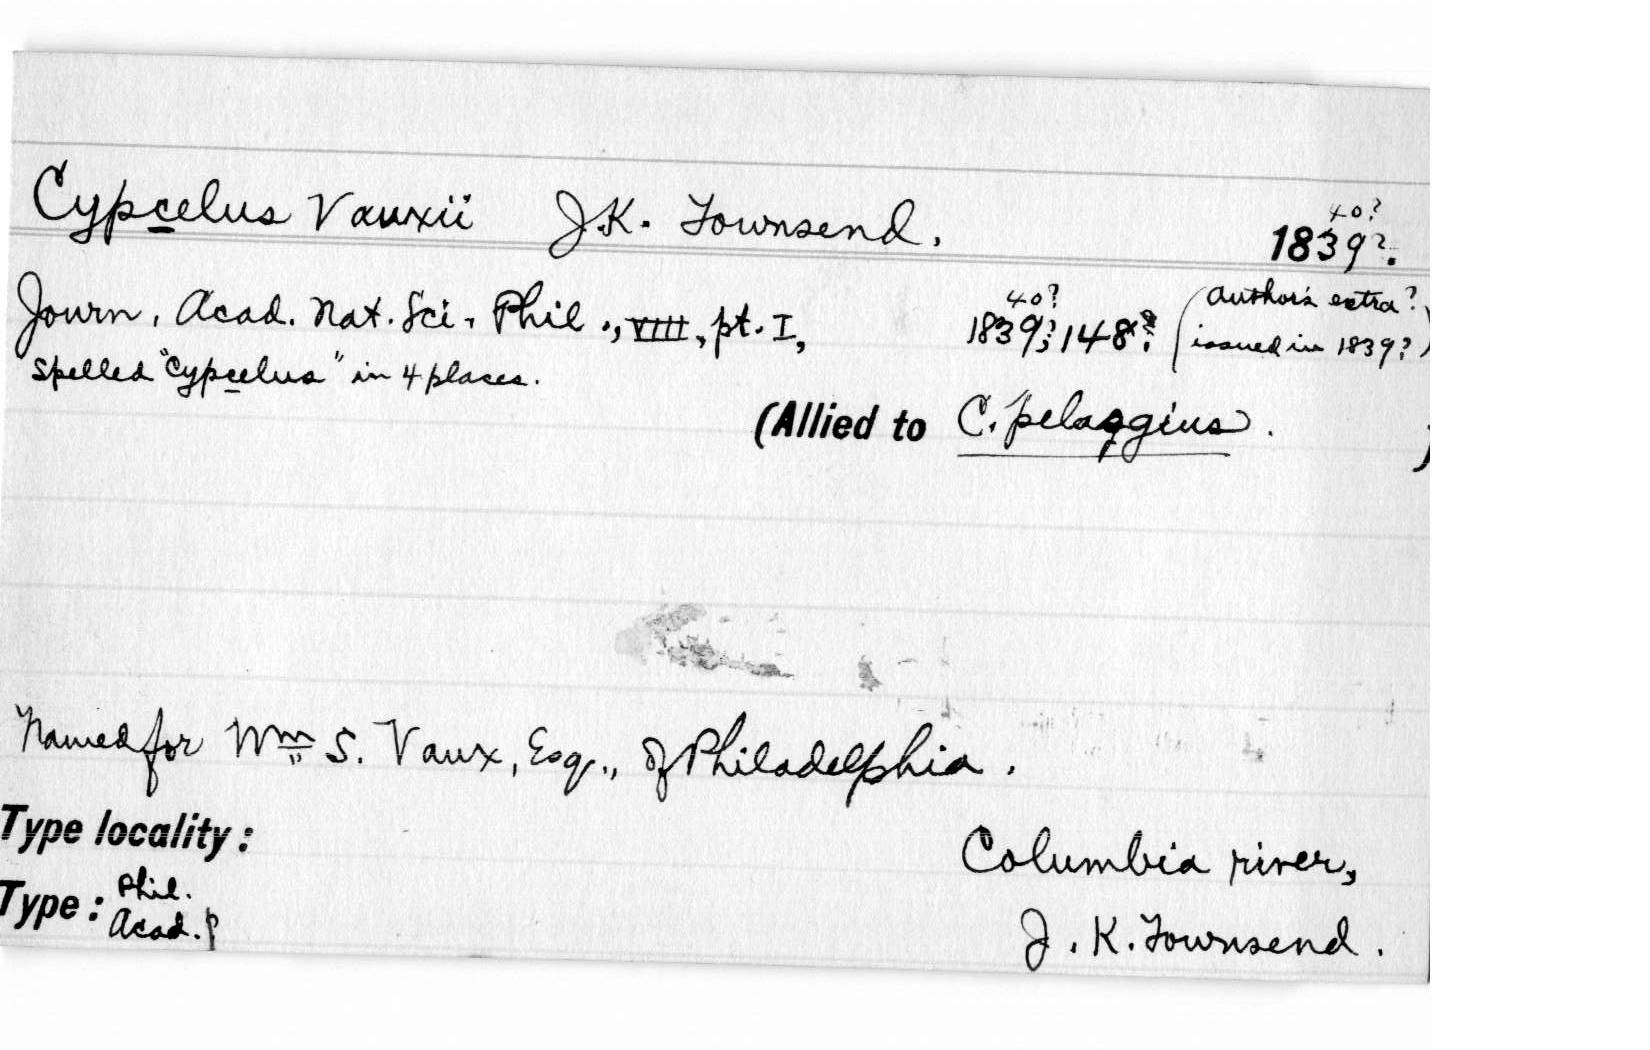 40?
Cypcelus Vauxii J.K. Townsend. 1839?.
40? (author's extra?
Journ. Acad. Nat. Sci. Phil., VIII, pt. I, 1839?; 148? issued in 1839?)
spelled "Cypcelus" in 4 places.
(Allied to C. pelasgius. )
Named for Wm S. Vaux, Esq., of Philadelphia.
Type locality: Columbia river,
Type: Phil. Acad.? J. K. Townsend.